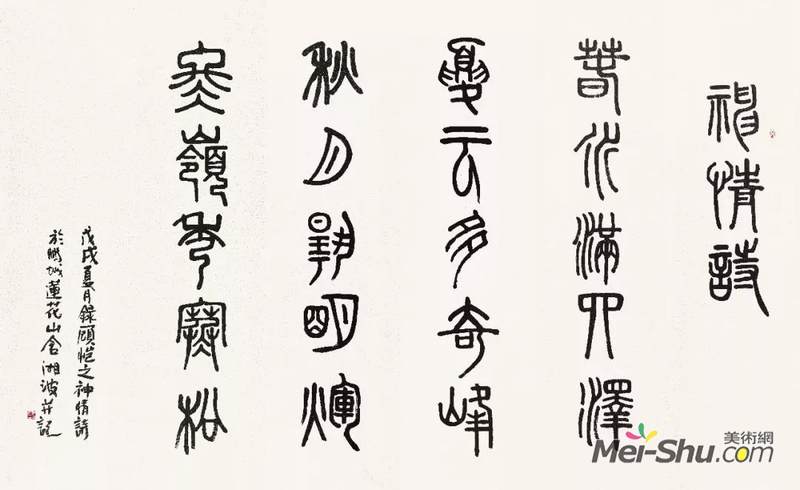 神情詩
春水滿四澤
夏云多奇峰
秋月揚明煇
冬嶺秀寒松
戊戌夏月錄顧愷之神情詩
於鵬城蓮花山舍湘波并記
美術網
Mei-Shu.com